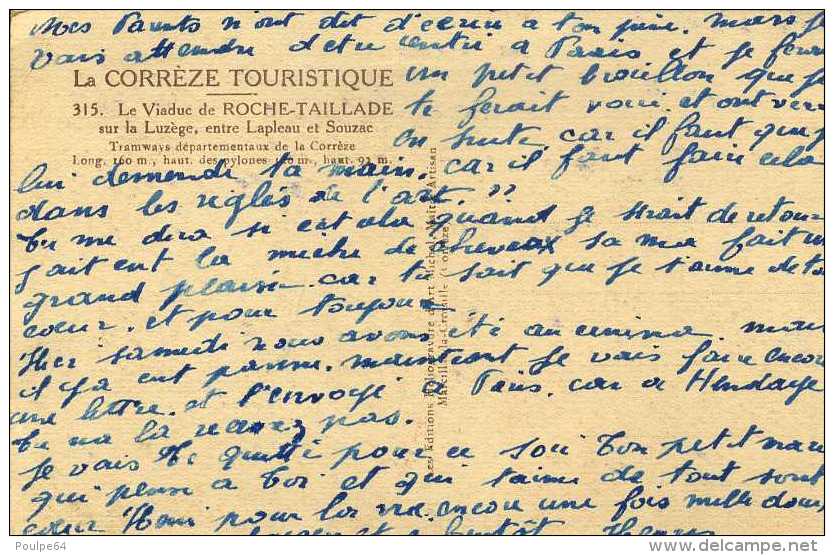 Mes Parents n'ont dit d'ecrire a ton père. mais je
vais attendre d'etre rentré a Paris et je ferai
La CORRÈZE TOURISTIQUE
un petit brouillon que je
315. Le Viaduc de ROCHE-TAILLADE
te ferait voir. et ont verra
sur la Luzège, entre Lapleau et Souzac
en suite, car il faut que je
Tramways départementaux de la Corrèze
Long. 160 m., haut. des pylones m., haut. 92 m.
lui demende ta main. car il faut faire cela
dans les regles de l'art. ??
Tu me dira si cela quand je serait de retour
sait ent la mèche de cheveux sa ma fait un
grand plaisir car tu sait que je t'aime de tout
coeur. et pour toujours
Hier samedi nous avons été au cinéma. mais
il y a ent panne. maintenant je vais faire encore
une lettre. et l'envoyé a Paris. car a Hendaye
tu na la recevez pas.
Je vais te quitté pour ce soir Ton petit mari
qui pense a Toi et qui t'aime de tout sont
coeur Henri pour la vie. encore une fois mille doux
et a bientôt Henri
Les Éditions d'Art Michel Artisan
Marcillac-la-Croisille (Corrèze)
Poulpe64
delcampe.net